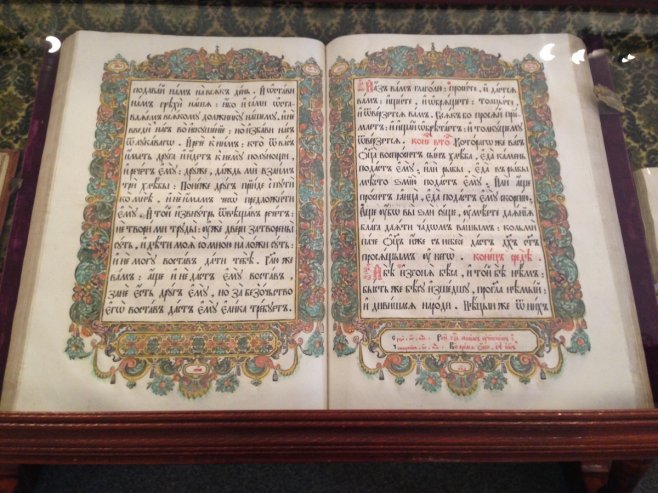 подавай намъ на всѧкъ день , и ѡстави
намъ грѣхи нашѧ : ибо и сами ѡста
влѧемъ всѧкому должникꙋ нашемꙋ , и не
введи насъ во искꙋшенїе : но избави насъ
ѿ лꙋкавагѡ . И рече къ нимъ : кто ѿ васъ
имать дрꙋга и идетъ к немꙋ полꙋнощи ,
и речетъ емꙋ : дрꙋже , даждь ми взаимъ
три хлѣбы : Понеже дрꙋгъ прїиде с пꙋти
ко мнѣ , и не имамъ чесѡ предложити
емꙋ . И той извнꙋтрь ѿвѣщавъ речетъ :
не твори ми трꙋды : ᲂуже двери затворены
сꙋть , и дѣти моѧ со мною на ложи сꙋть :
и не могꙋ воставъ дати тебѣ . Гл҃ю же
вамъ : аще и не дастъ емꙋ воставъ ,
зане есть дрꙋгъ емꙋ , но за безочство
егѡ воставъ дастъ емꙋ елика требꙋетъ .
И азъ вамъ глаголю : просите , и дастсѧ
вамъ : ищите , и ѡбрѧщете : толцыте ,
и ѿверзетсѧ вамъ . Всѧкъ бо просѧй прї
емлетъ : и ищай ѡбрѣтаетъ : и толкꙋщемꙋ
ѿверзетсѧ . Котораго же васъ
ѻц҃а вопроситъ сынъ хлѣба , еда камень
подастъ емꙋ ; или рыбы , еда в рыбы
мѣсто ѕмїю подастъ емꙋ ; Или аще
проситъ ꙗица , еда подастъ емꙋ скорпїю ;
Аще ᲂубо вы ѕли сꙋще , ᲂумѣете даѧнїѧ
блага даѧти чадомъ вашымъ : кольми
паче ѻц҃ъ , иже съ небесе дастъ дх҃а ст҃а
просѧщымъ ᲂу негѡ . конецъ средѣ .
И бѣ изгонѧ бѣса , и той бѣ нѣмъ :
бысть же бѣсꙋ изшедшꙋ , прогл҃а нѣмый :
и дивишасѧ народи . Нѣцыи же ѿ нихъ